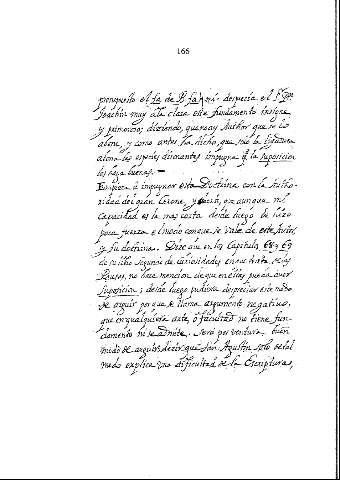 166
porque solo el fa de B fa mi: desprecia el P. Fr.
Joachin muy à la clara este fundamento insigne
y primoroso, diziendo, que no ay Author que se lo
abone, y como antes ha dicho, que solo la ligadura
abona las especies disonantes, impugna q. la suposicion
los haga buenas. —
Empieza à impugnar esta Doctrina con la autho-
ridad del gran Cerone, y será, aunque mi
capacidad es la mas corta, desde luego le hago
poca fuerza el modo con que se vale de este Author,
y su doctrina. Dize assi en los Capitulos 68 y 69
de su libro segundo de curiosidades en que trata de las
Pausas, no hace mencion de que en ellas pueda aver
suposicion; desde luego pudiera despreciar este modo
de arguir porque se llama argumento negativo,
que en qualquiera arte, ò facultad no tiene fun-
damento ni se admite. Será por ventura buen
modo de arguir, dezir que San Agustin solo de tal
modo explica una dificultad de la Escriptura,